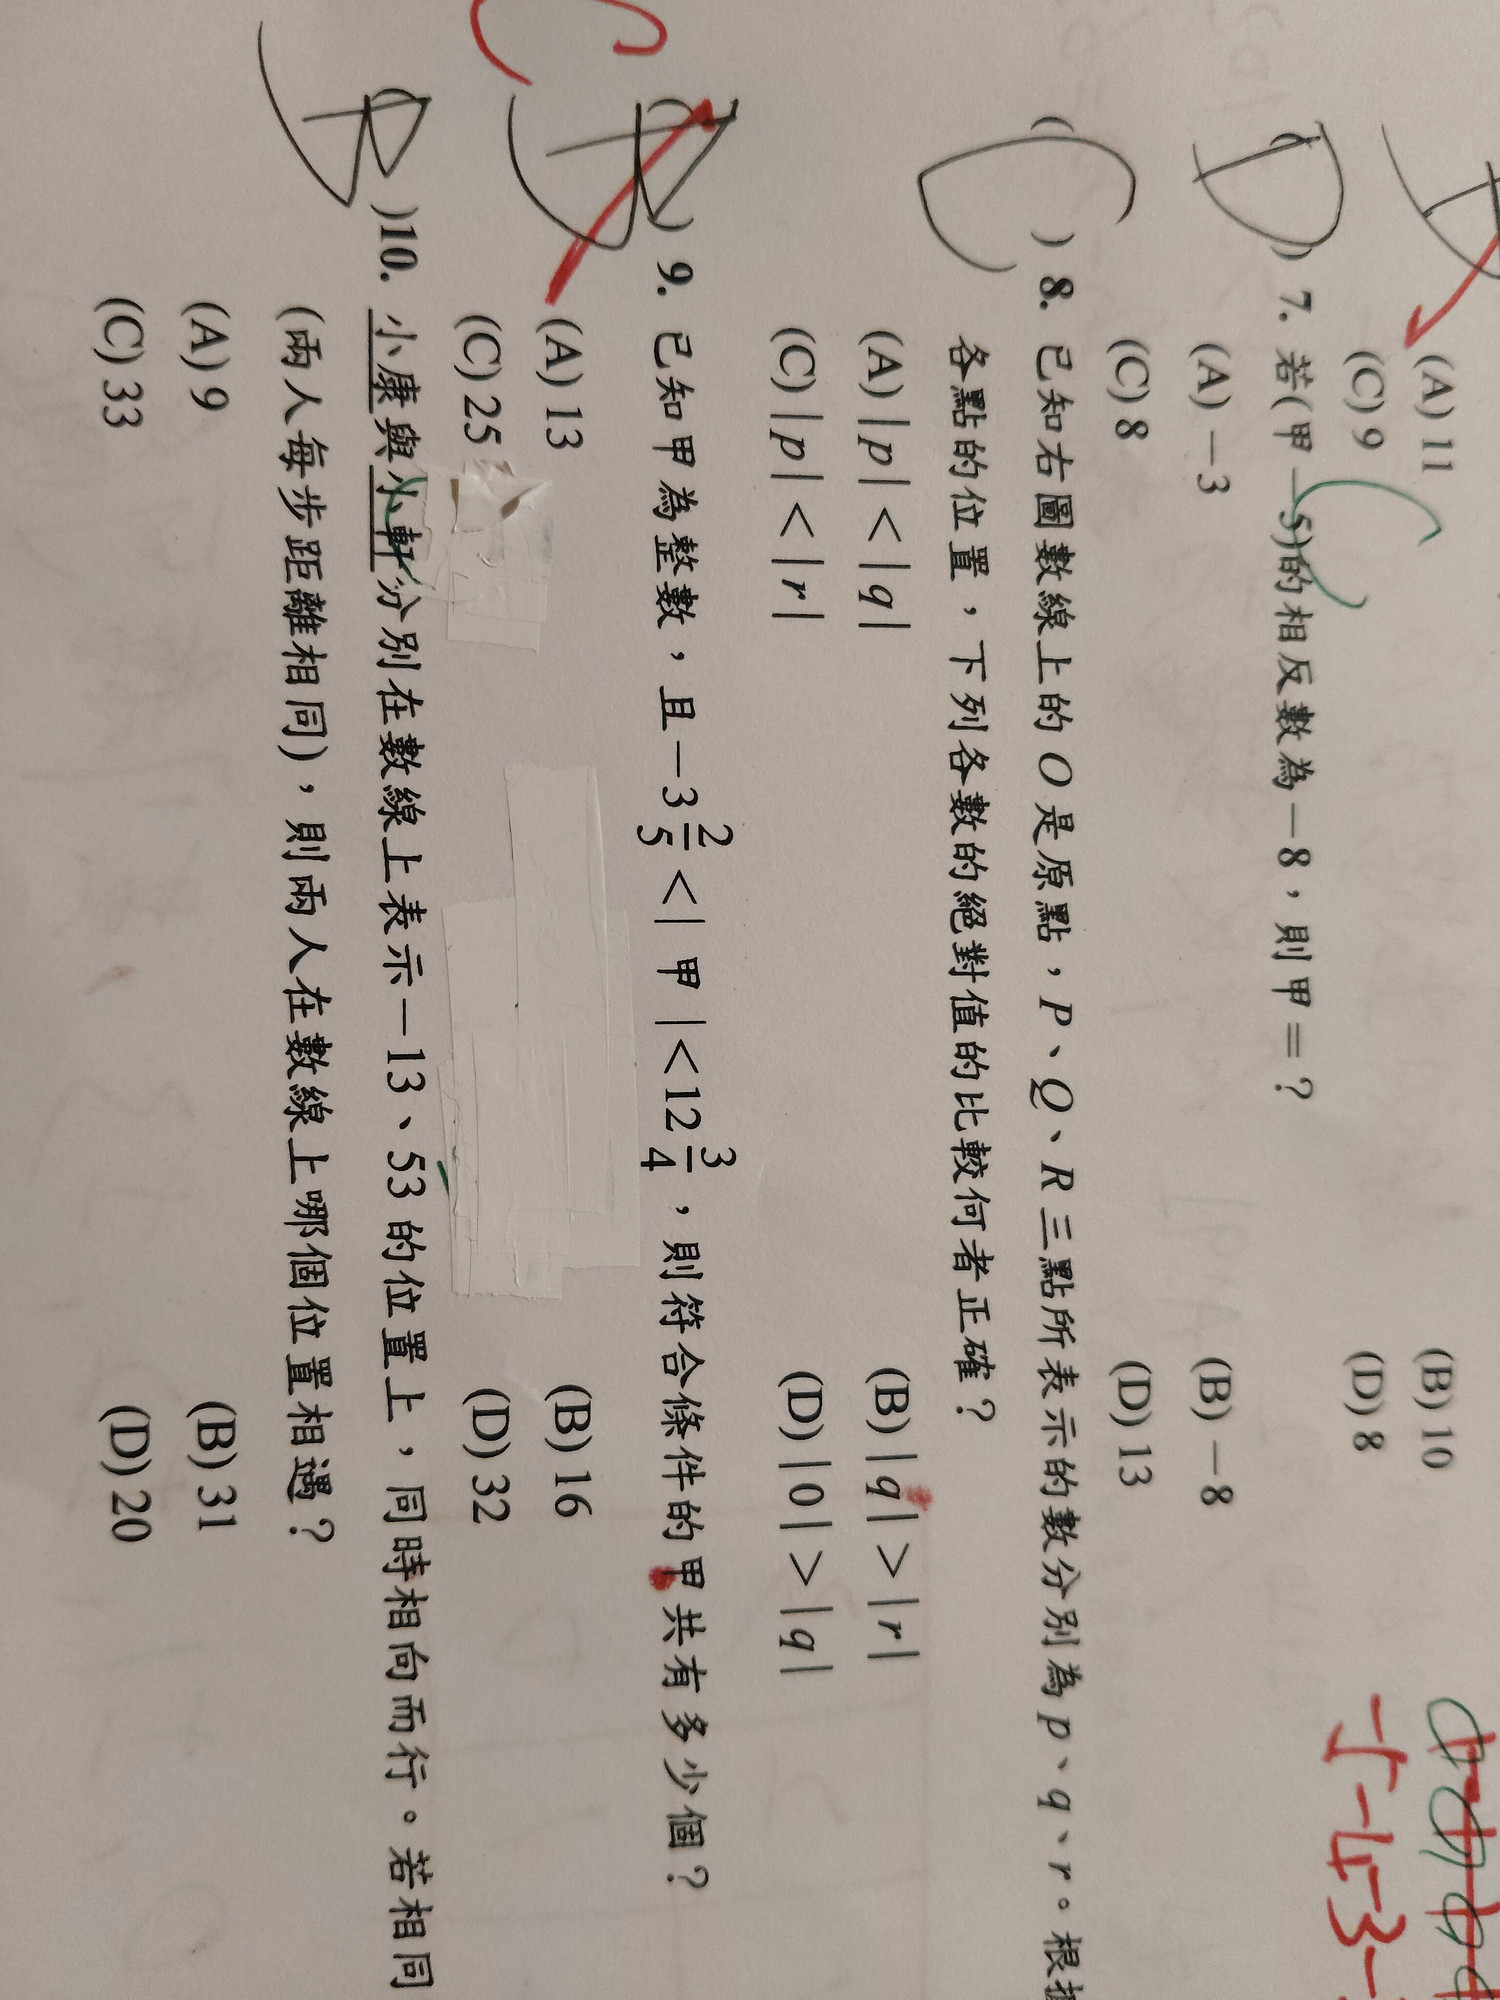 (A) 11 (B) 10
(C) 9 (D) 8
D ) 7. 若(甲－5)的相反數為－8，則甲＝？
(A) －3 (B) －8
(C) 8 (D) 13
( C ) 8. 已知右圖數線上的 O 是原點，P、Q、R 三點所表示的數分別為 p、q、r。根據
各點的位置，下列各數的絕對值的比較何者正確？
(A) |p| < |q| (B) |q| > |r|
(C) |p| < |r| (D) |0| > |q|
C
) 9. 已知甲為整數，且－3 2/5 <| 甲 |<12 3/4，則符合條件的甲共有多少個？
(A) 13 (B) 16
(C) 25 (D) 32
)10. 小康與小軒分別在數線上表示－13、53 的位置上，同時相向而行。若相同
(兩人每步距離相同)，則兩人在數線上哪個位置相遇？
(A) 9 (B) 31
(C) 33 (D) 20